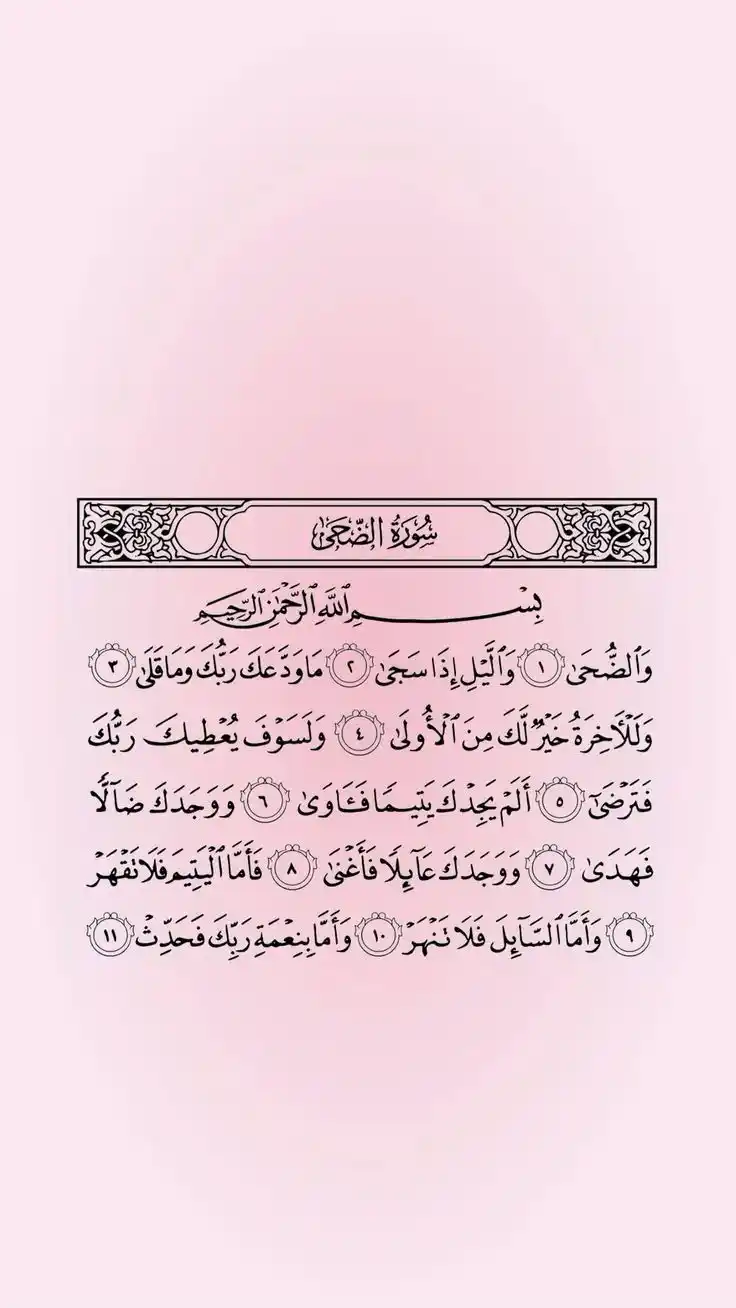 سُورَةُ الضُّحَىٰ
بِسْمِ ٱللَّهِ ٱلرَّحْمَٰنِ ٱلرَّحِيمِ
وَٱلضُّحَىٰ ١ وَٱلَّيْلِ إِذَا سَجَىٰ ٢ مَا وَدَّعَكَ رَبُّكَ وَمَا قَلَىٰ ٣
وَلَلْأٓخِرَةُ خَيْرٌ لَّكَ مِنَ ٱلْأُولَىٰ ٤ وَلَسَوْفَ يُعْطِيكَ رَبُّكَ
فَتَرْضَىٰٓ ٥ أَلَمْ يَجِدْكَ يَتِيمًا فَـَٔاوَىٰ ٦ وَوَجَدَكَ ضَآلًّا
فَهَدَىٰ ٧ وَوَجَدَكَ عَآئِلًا فَأَغْنَىٰ ٨ فَأَمَّا ٱلْيَتِيمَ فَلَا تَقْهَرْ
٩ وَأَمَّا ٱلسَّآئِلَ فَلَا تَنْهَرْ ١٠ وَأَمَّا بِنِعْمَةِ رَبِّكَ فَحَدِّثْ ١١